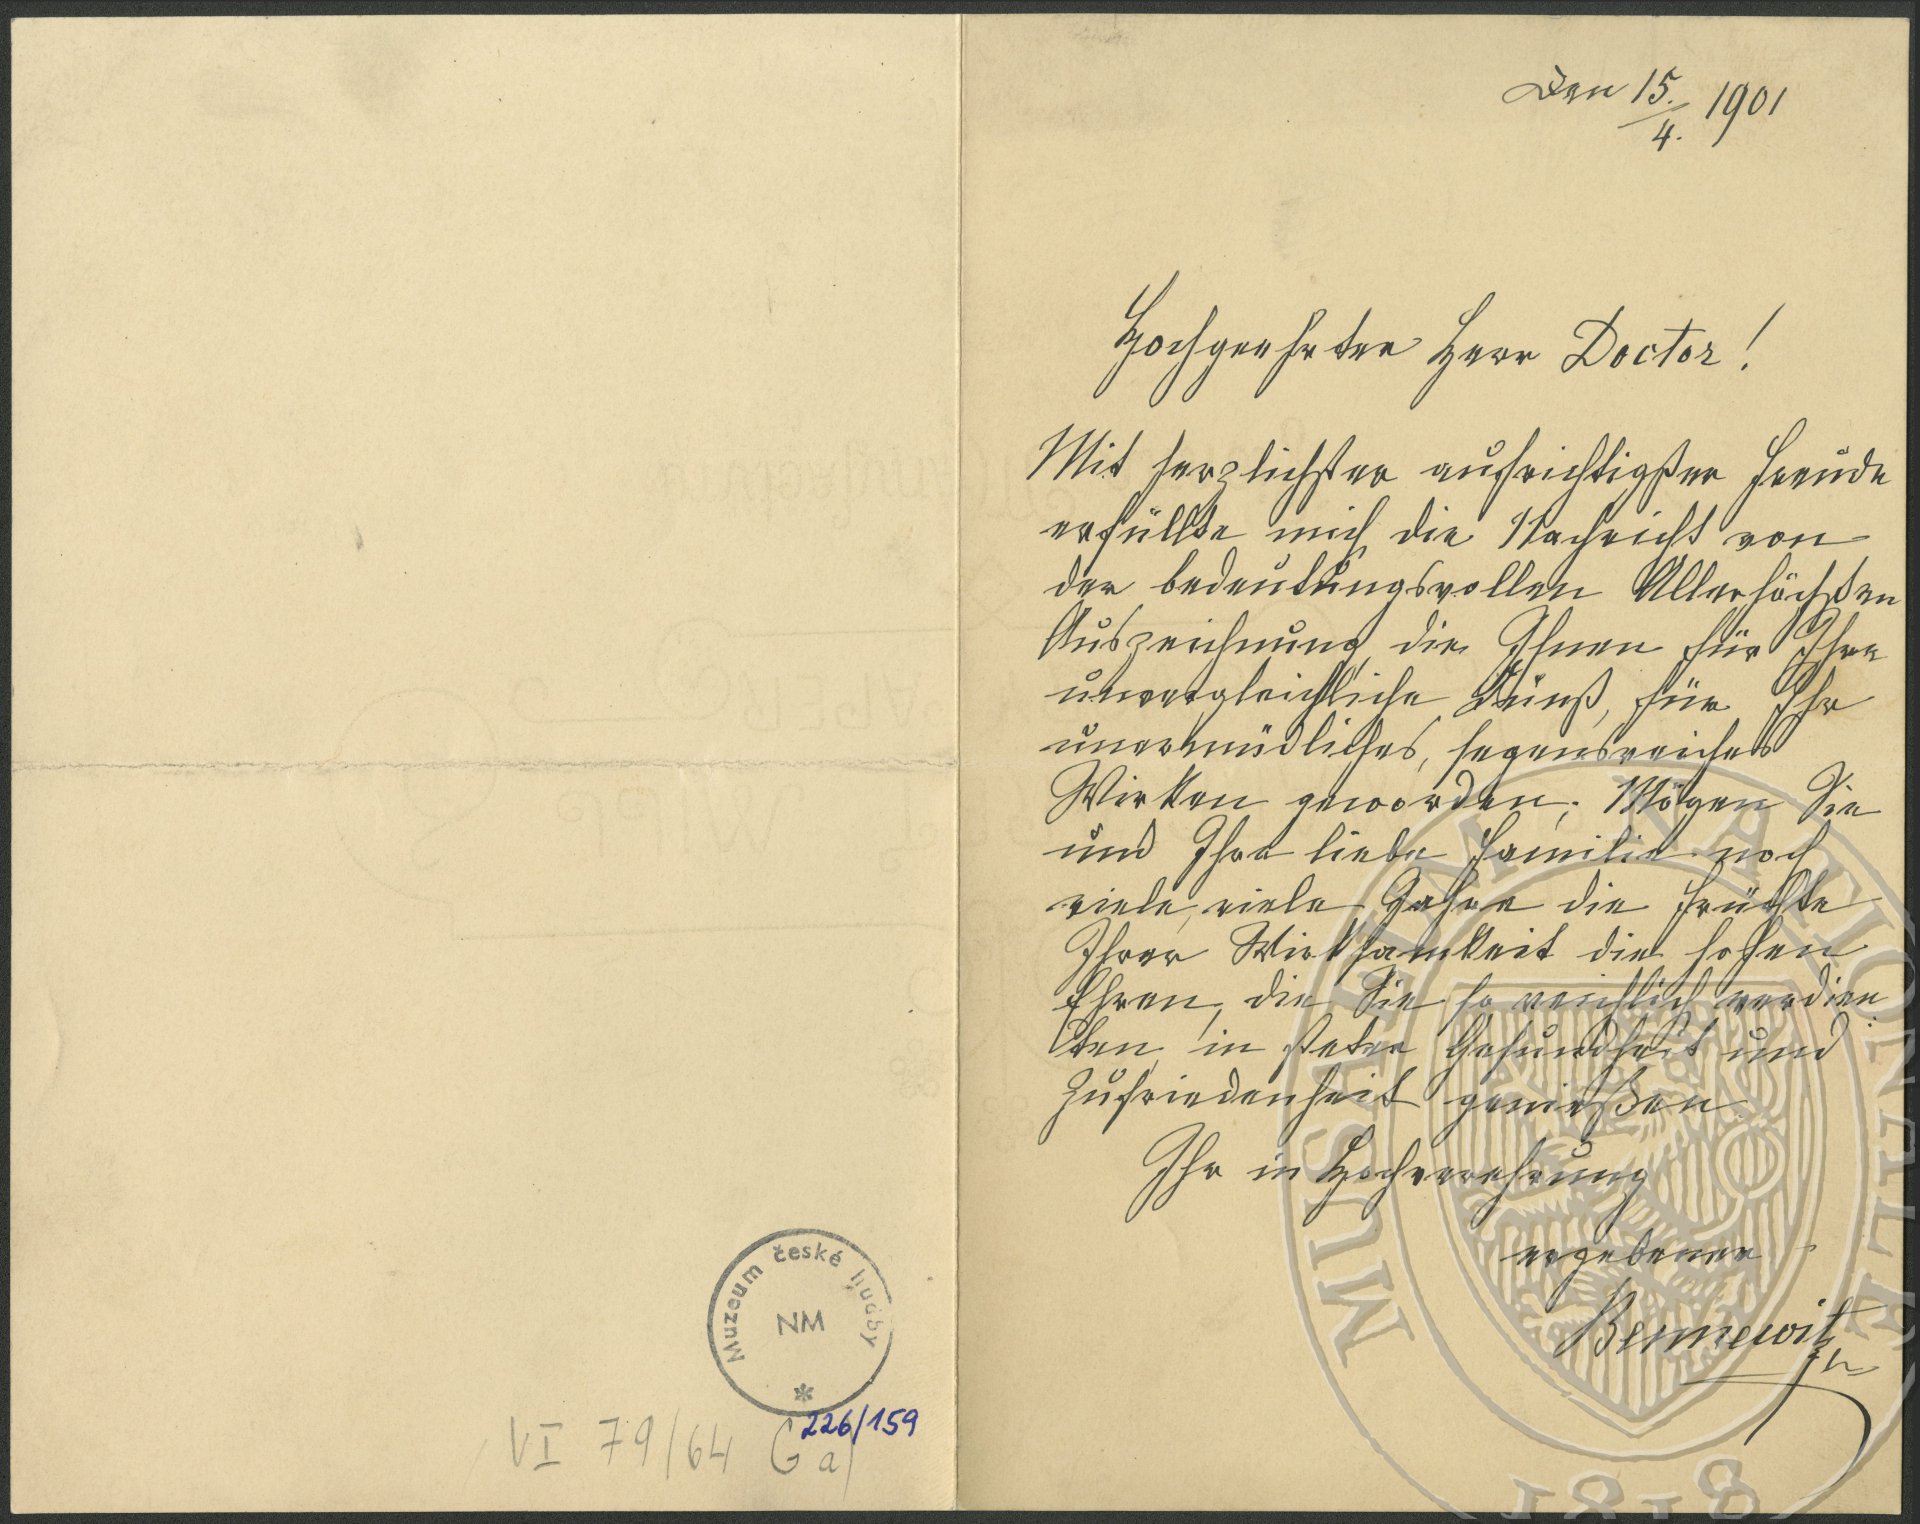 Muzeum české hudby
NM
226/159
VI 79/64 Ga
Den 15./4. 1901
Hochgeehrter Herr Doctor!
Mit herzlichster aufrichtigster Freude
erfüllte mich die Nachricht von
der bedeutungsvollen Allerhöchsten
Auszeichnung die Ihnen für Ihre
unvergleichliche Kunst, für Ihr
unermüdliches, segensreiches
Wirken geworden. Mögen Sie
und Ihre liebe Familie noch
viele, viele Jahre die Früchte
Ihrer Wirksamkeit die hohen
Ehren, die Sie so reichlich verdien
ten, in steter Gesundheit und
Zufriedenheit genießen
Ihr in Hochverehrung
ergebener
Bennewitz
MUSAEUM NATIONALE
1818